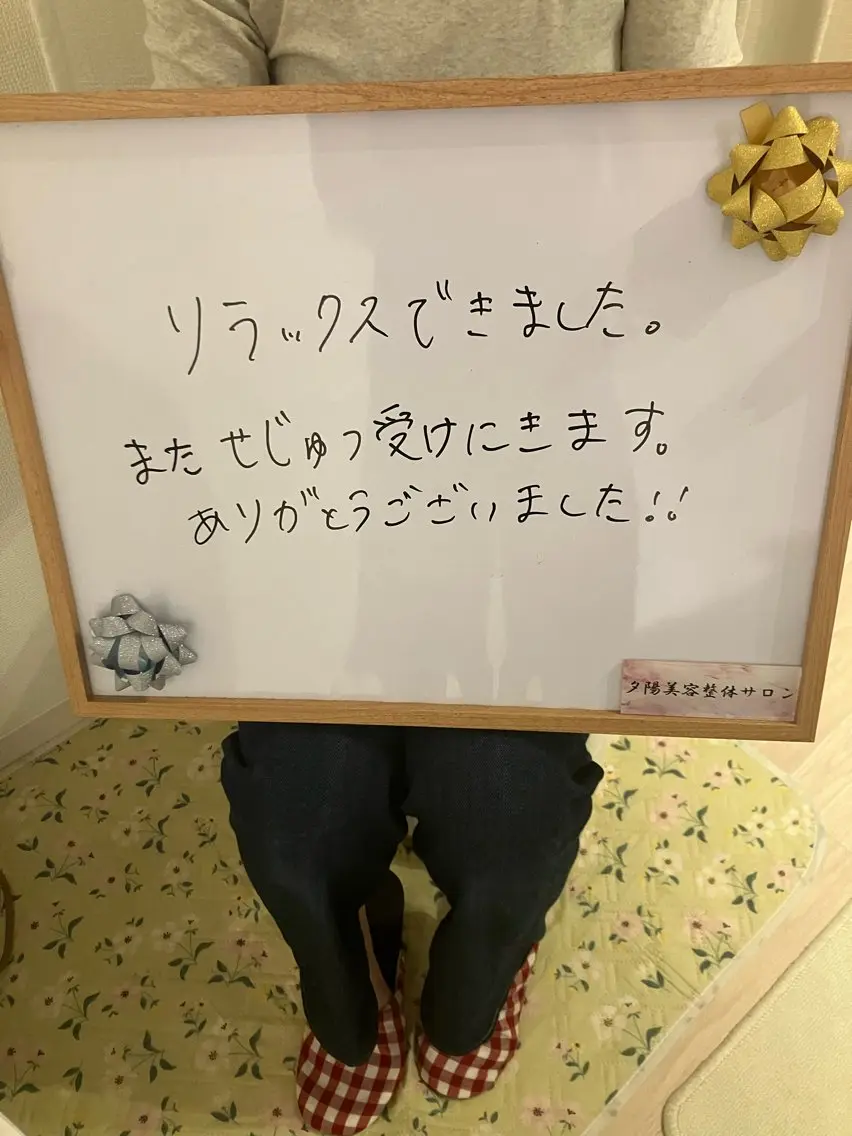 リラックスできました。
またせじゅつ受けにきます。
ありがとうございました!!
夕陽美容整体サロン